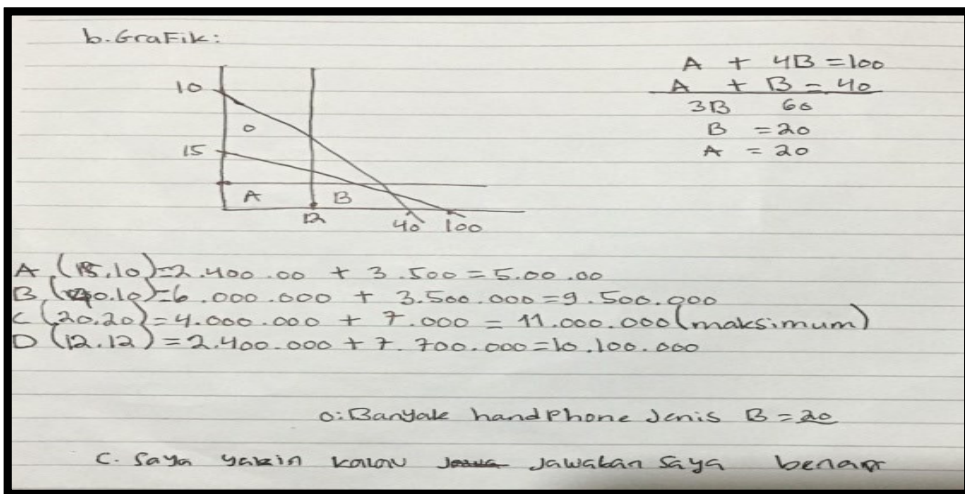 b. Grafik:
A + 4B = 100
A + B = 40
3B 60
B = 20
A = 20
10
0
15
A B
12 40 100
A (15.10) = 2.400.00 + 3.500 = 5.00.00
B (40.10) = 6.000.000 + 3.500.000 = 9.500.000
C (20.20) = 4.000.000 + 7.000 = 11.000.000 (maksimum)
D (12.12) = 2.400.000 + 7.700.000 = 10.100.000
o: Banyak handphone Jenis B = 20
C. Saya yakin kalau Jawaban saya benar